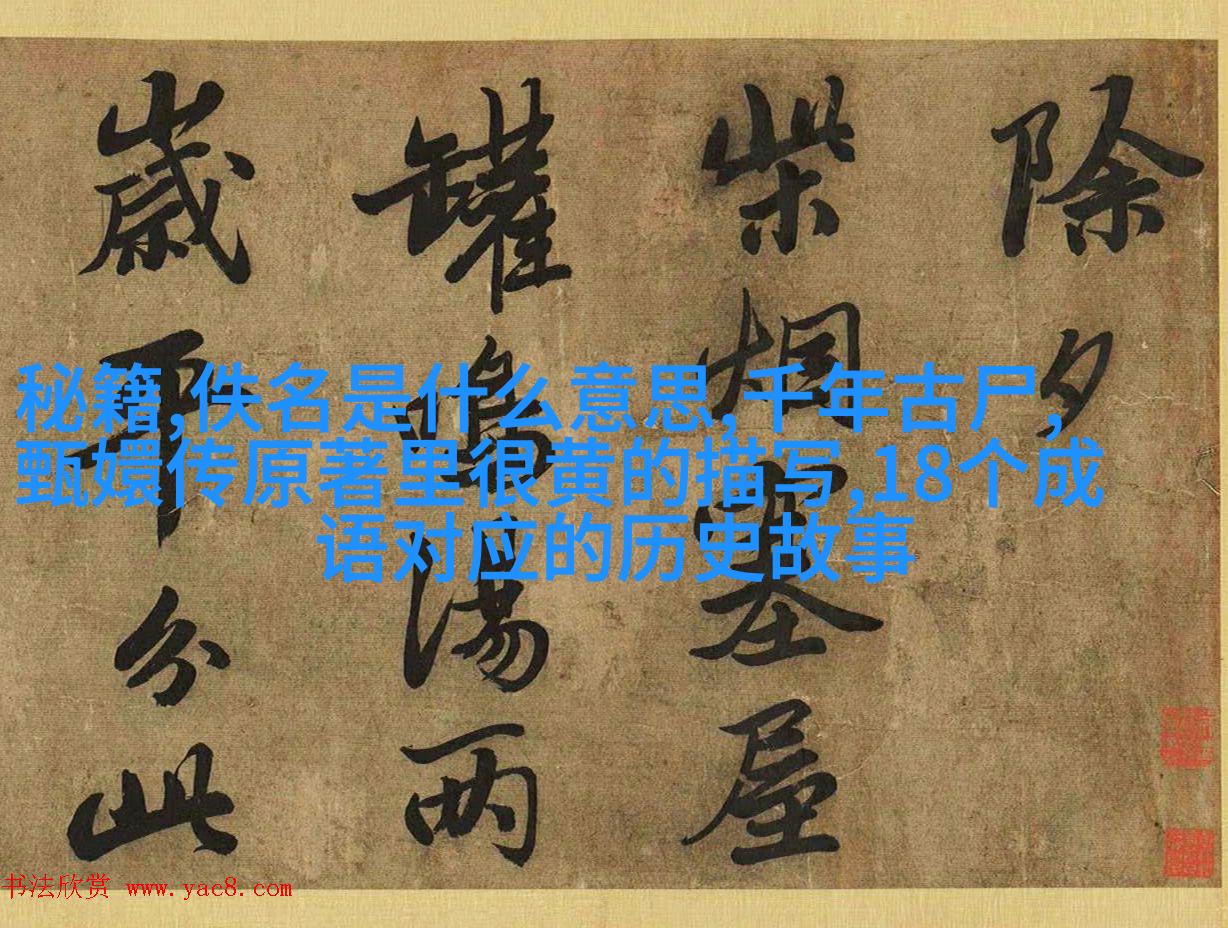 除夕
柴烟塞屋
罐鳴湯两
歲平分此
秘籍,佚名是什么意思,千年古尸,
甄嬛传原著里很黄的描写,18个成
语对应的历史故事
书法欣赏 www.yac8.com